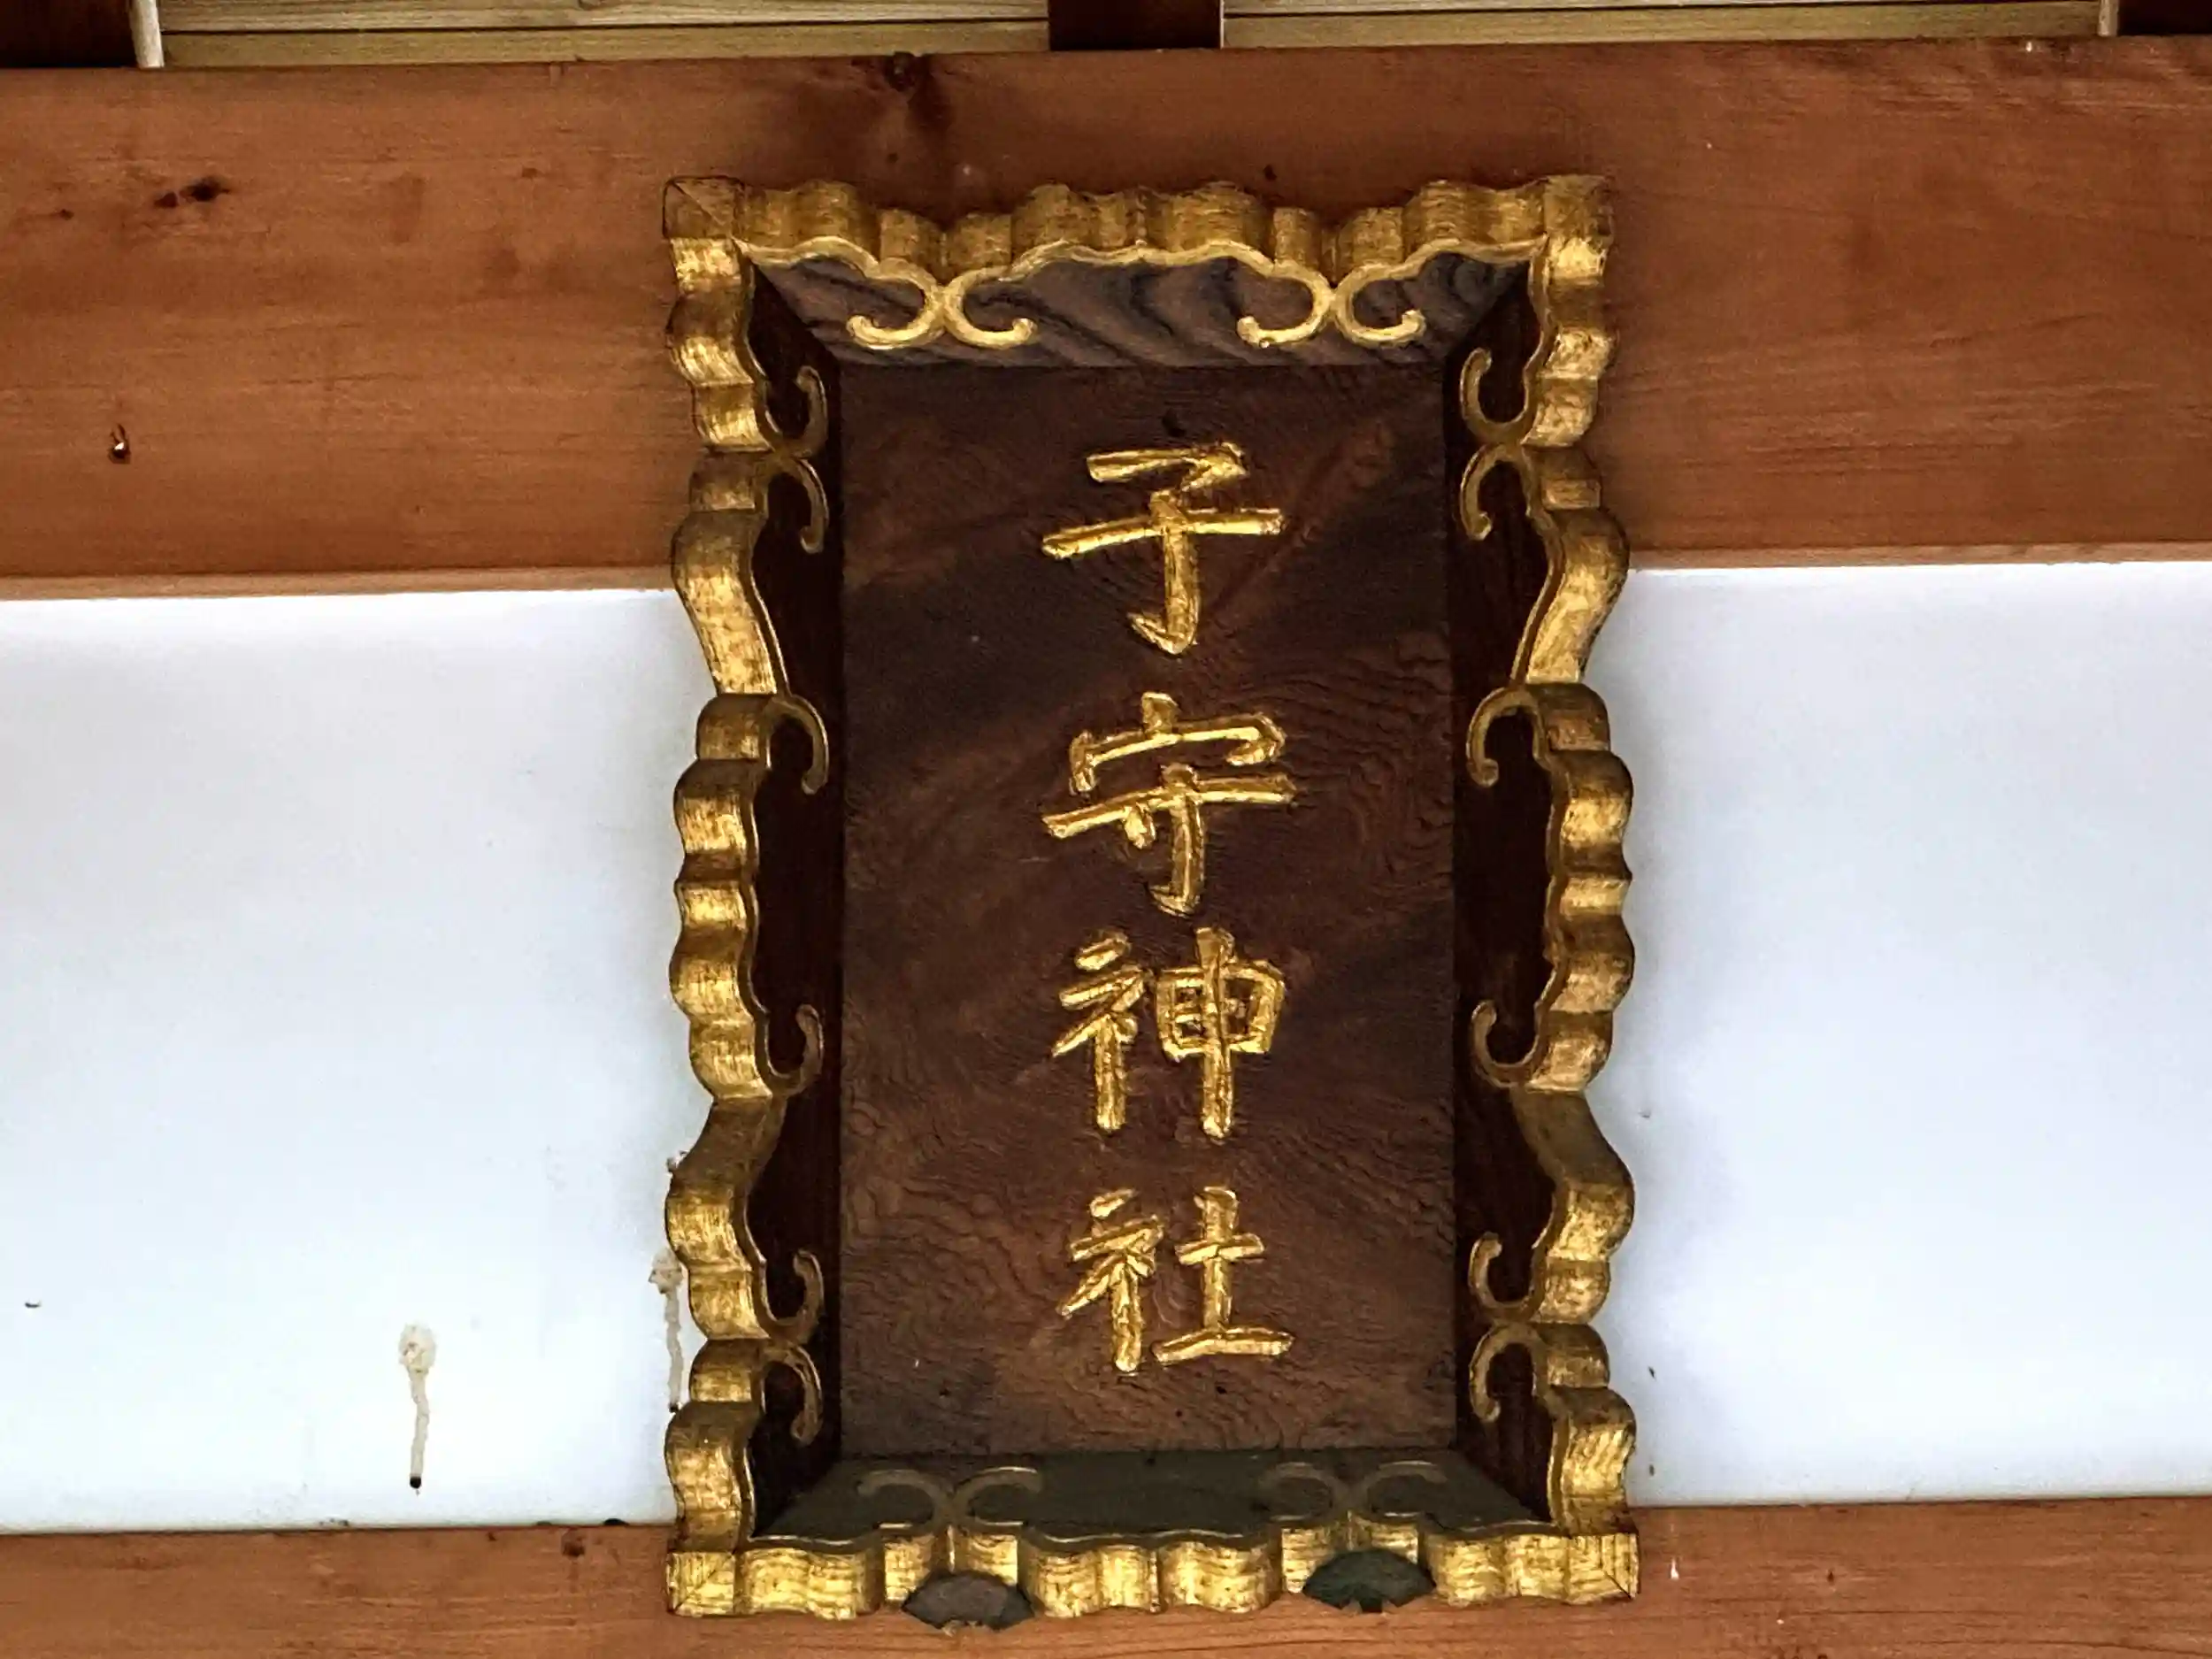 子守神社